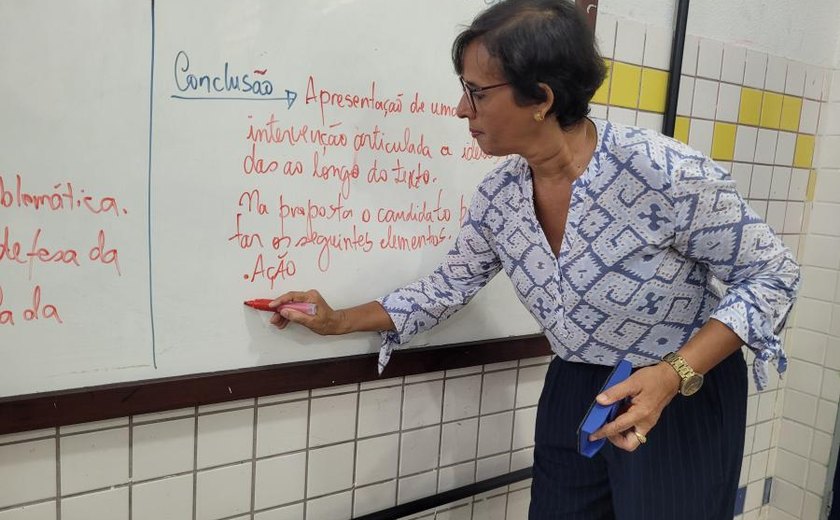 Conclusão → Apresentação de uma
intervenção articulada a
das ao longo do texto.
Na proposta o candidato
tar os seguintes elementos.
. Ação
blemática.
defesa da
da